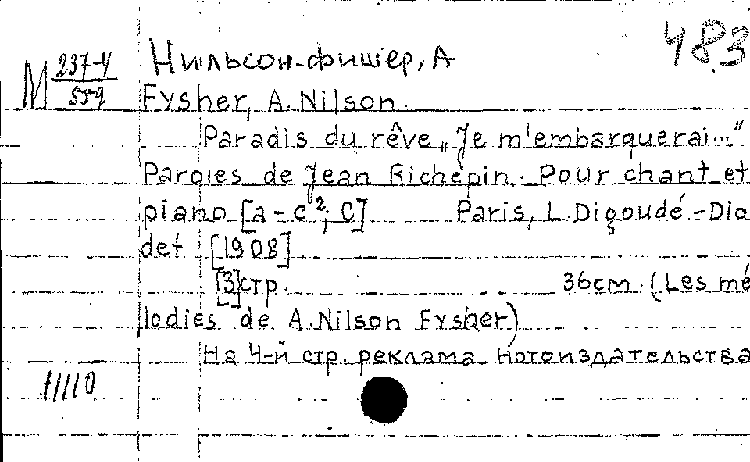 483
М 237-4/559
Нильсон-фишер, А
Fysher, A. Nilson.
Paradis du rêve „Je m'embarquerai..."
Paroles de Jean Richepin. Pour chant et
piano [a-c², C] Paris, L. Digoudé-Dio
det [1908]
[3] стр. 36cm. (Les mé
lodies de A. Nilson Fysher)
На 4-й стр. реклама нотоиздательства
11110